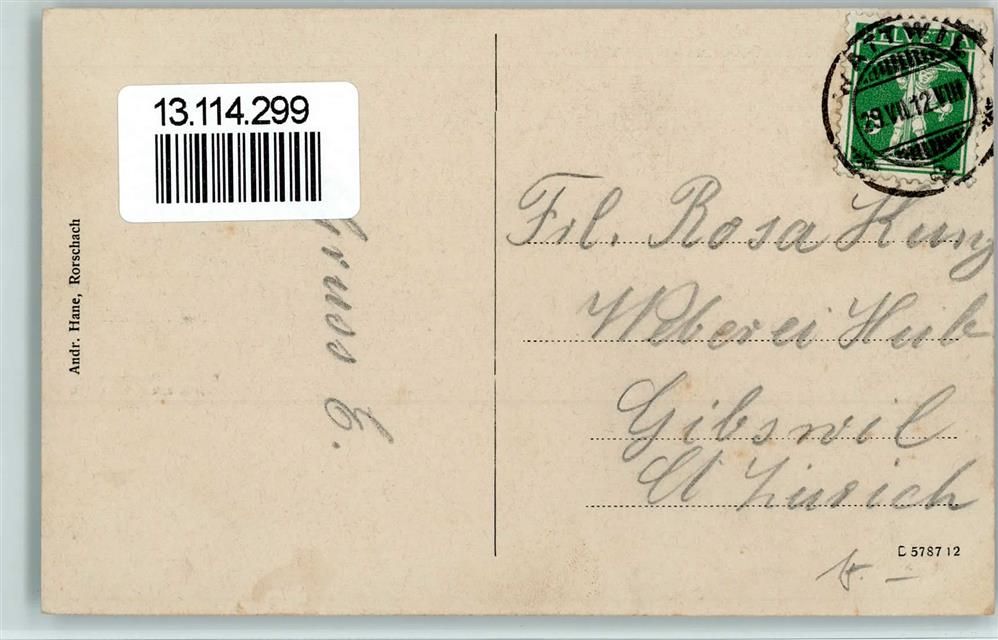 13.114.299
Andr. Hane, Rorschach
Gruss E.
HELVETIA
WATTWIL
29.VII.12.VIII
Frl. Rosa Kunz
Weberei Hub
Gibswil
Ct Zürich
E 5787 12